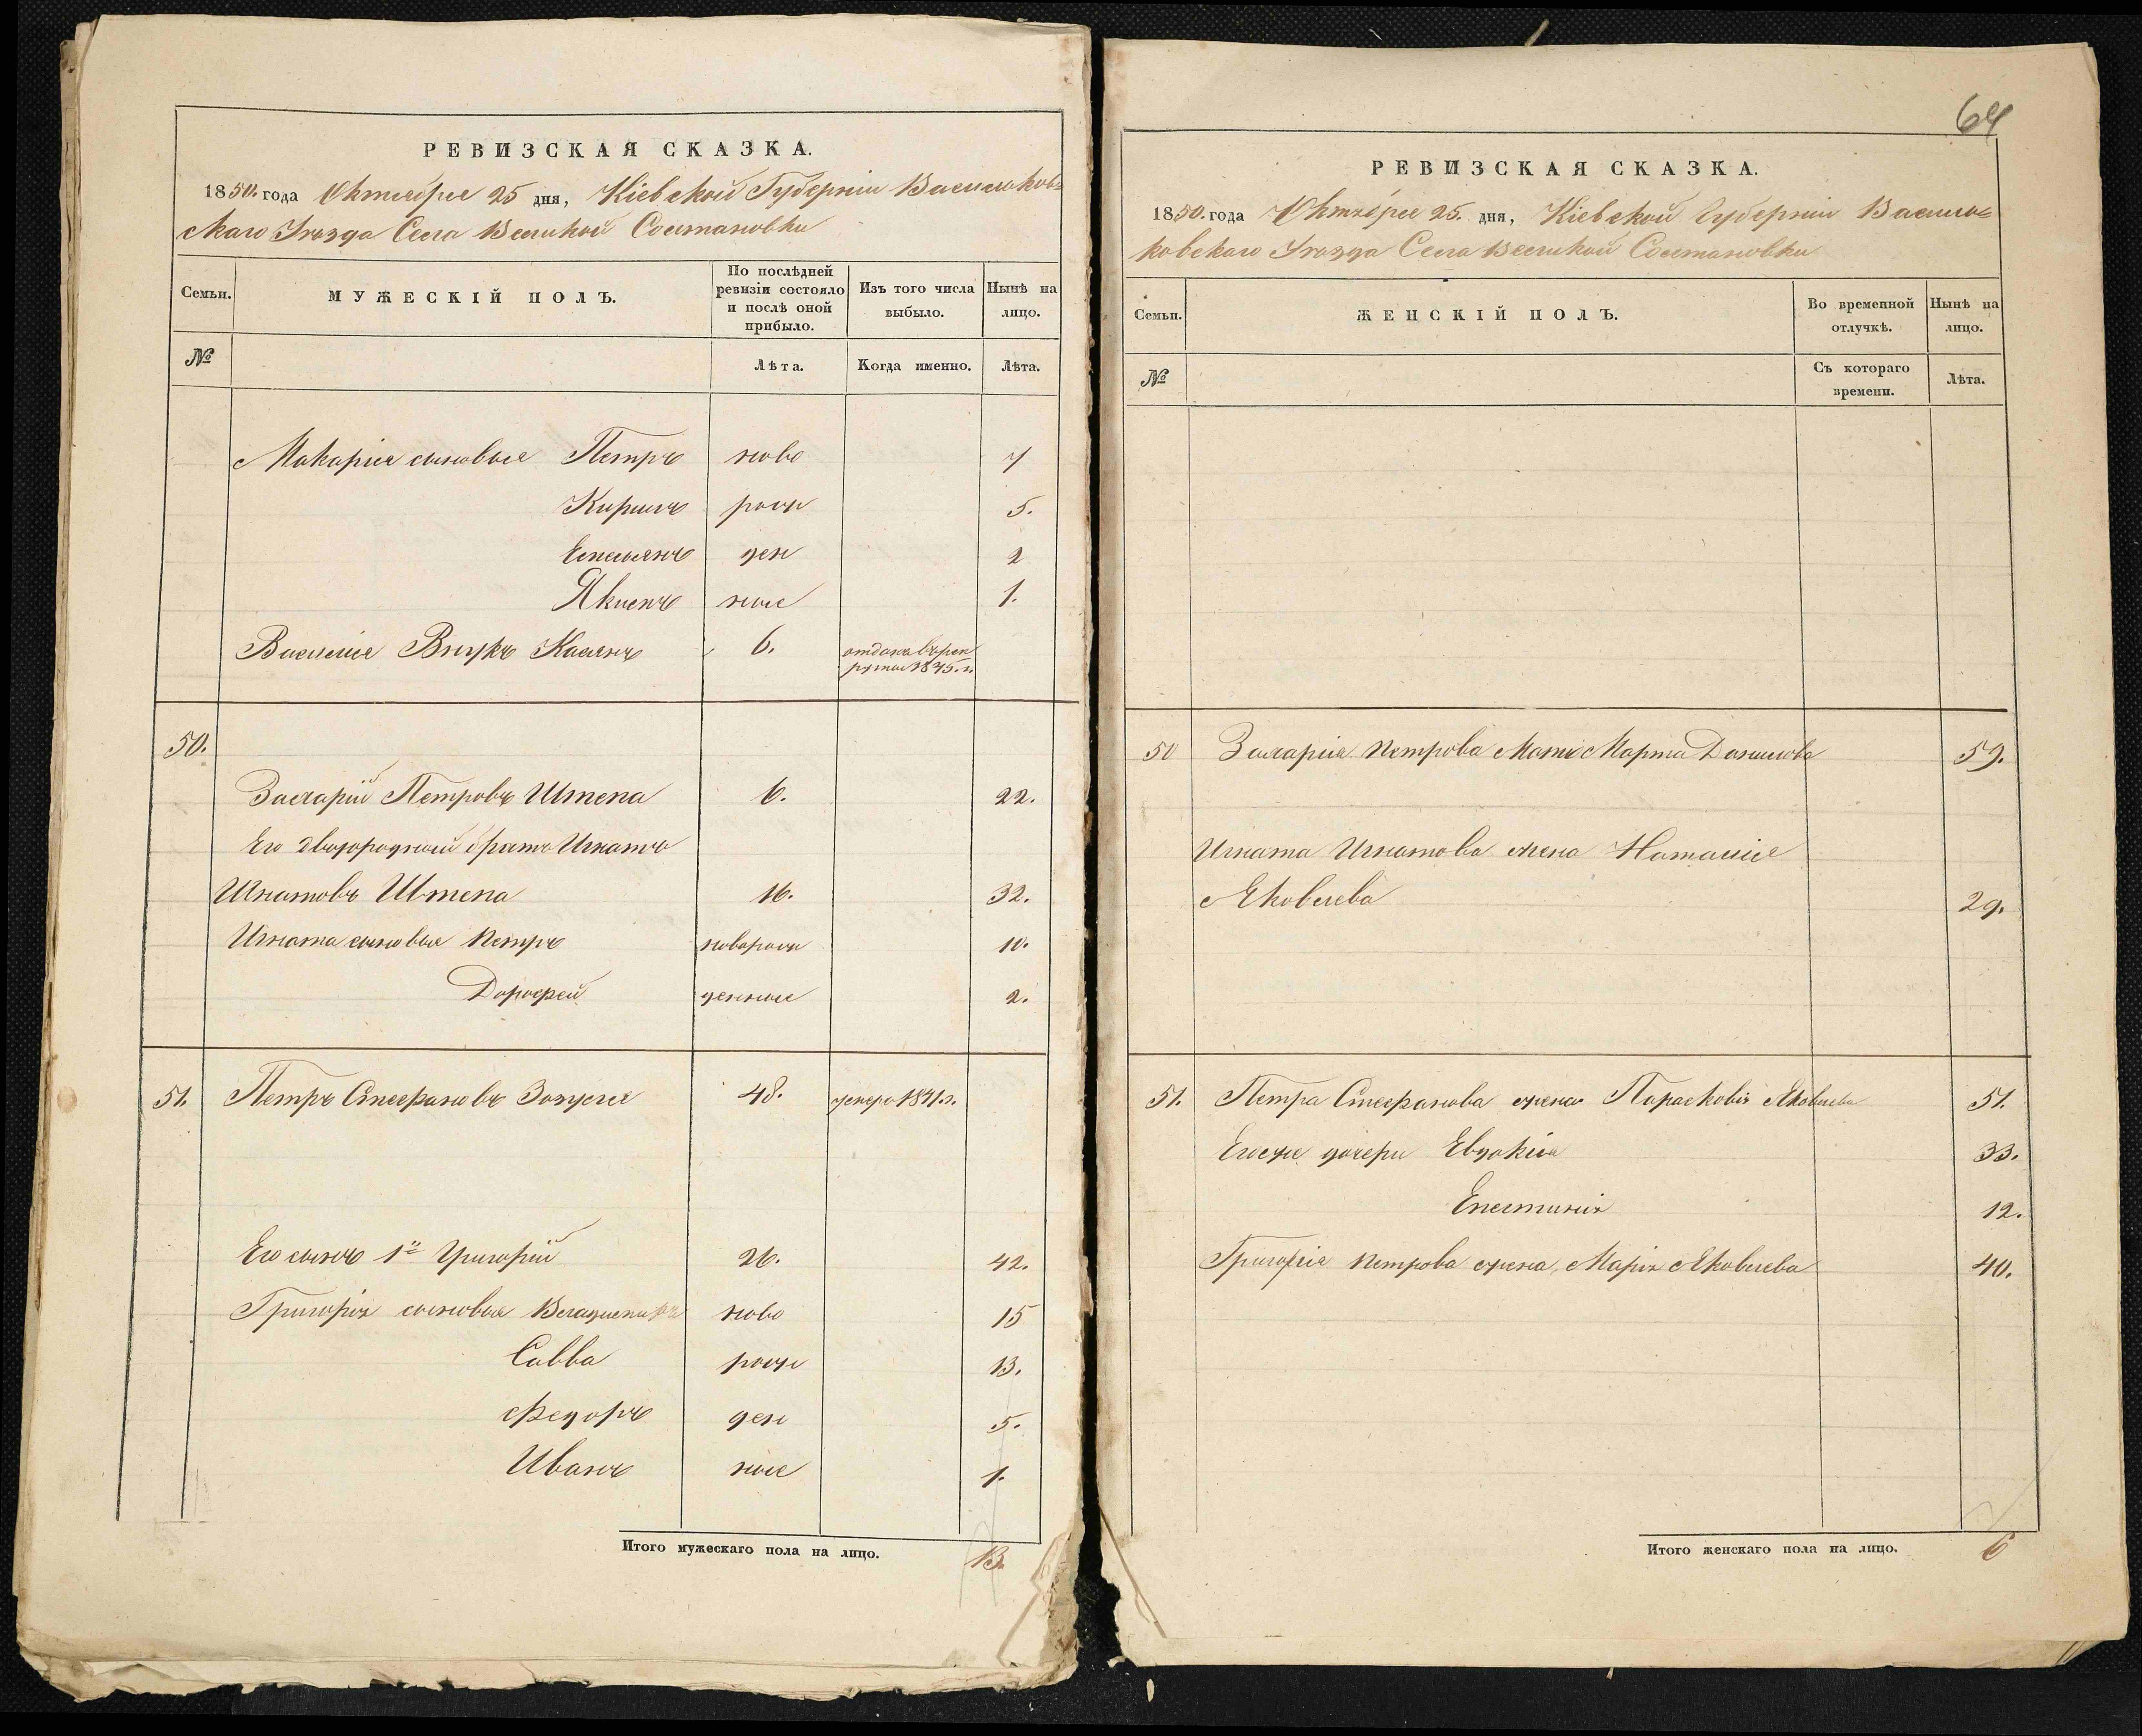 РЕВИЗСКАЯ СКАЗКА.
1850. года Октября 25 дня, Кіевской Губерніи Васильков-
скаго Уѣзда Села Великой Солтановки
Семьи.
МУЖЕСКІЙ ПОЛЪ.
По послѣдней ревизіи состояло и послѣ оной прибыло.
Изъ того числа выбыло.
Нынѣ на лицо.
№
Лѣта.
Когда именно.
Лѣта.
Макарія сыновья Петръ ново 7
Кирилъ рож 5.
Емельянъ ден 2
Якимъ ные 1.
Василія Внукъ Касянъ 6. отданъ въ рек
руты 1845. г.
50.
Захарій Петровъ Штепа 6. 22.
Его двоюродный братъ Игнатъ
Игнатовъ Штепа 16. 32.
Игната сыновья Петръ новорож 10.
Дорофей денные 2.
51. Петръ Стефановъ 48. умеръ 1841. г.
Его сынъ 1й Григорій 26. 42.
Григорія сыновья Владимиръ ново 15
Савва рож 13.
Федоръ ден 5.
Иванъ ные 1.
Итого мужескаго пола на лицо. 13.
64
РЕВИЗСКАЯ СКАЗКА.
1850. года Октября 25. дня, Кіевской Губерніи Василь-
ковскаго Уѣзда Села Великой Солтановки
Семьи.
ЖЕНСКІЙ ПОЛЪ.
Во временной отлучкѣ.
Нынѣ на лицо.
№
Съ котораго времени.
Лѣта.
50 Захарія Петрова Мать Марта Данилова 59.
Игната Игнатова жена Наталія
Яковлева 29.
51. Петра Стефанова жена Парасковія Яковлева 51.
Егоже дочери Евдокія 33.
Епистинія 12.
Григорія Петрова жена Марія Яковлева 40.
Итого женскаго пола на лицо. 6